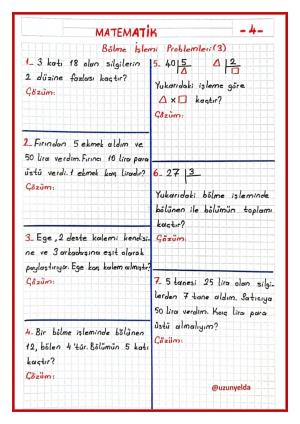 MATEMATİK
-4-
Bölme İşlemi Problemleri (3)
1- 3 katı 18 olan silgilerin
2 düzine fazlası kaçtır?
Çözüm:
2- Fırından 5 ekmek aldım ve
50 lira verdim. Fırıncı 10 lira para
üstü verdi. 1 ekmek kaç liradır?
Çözüm:
3- Ege, 2 deste kalemi kendisi-
ne ve 3 arkadaşına eşit olarak
paylaştırıyor. Ege kaç kalem almıştır?
Çözüm:
4- Bir bölme işleminde bölünen
12, bölen 4'tür. Bölümün 5 katı
kaçtır?
Çözüm:
5- 40 5 △ 2
△ □
Yukarıdaki işleme göre
△ x □ kaçtır?
Çözüm:
6- 27 3
Yukarıdaki bölme işleminde
bölünen ile bölümün toplamı
kaçtır?
Çözüm:
7- 5 tanesi 25 lira olan silgi-
lerden 7 tane aldım. Satıcıya
50 lira verdim. Kaç lira para
üstü almalıyım?
Çözüm:
@uzunyelda